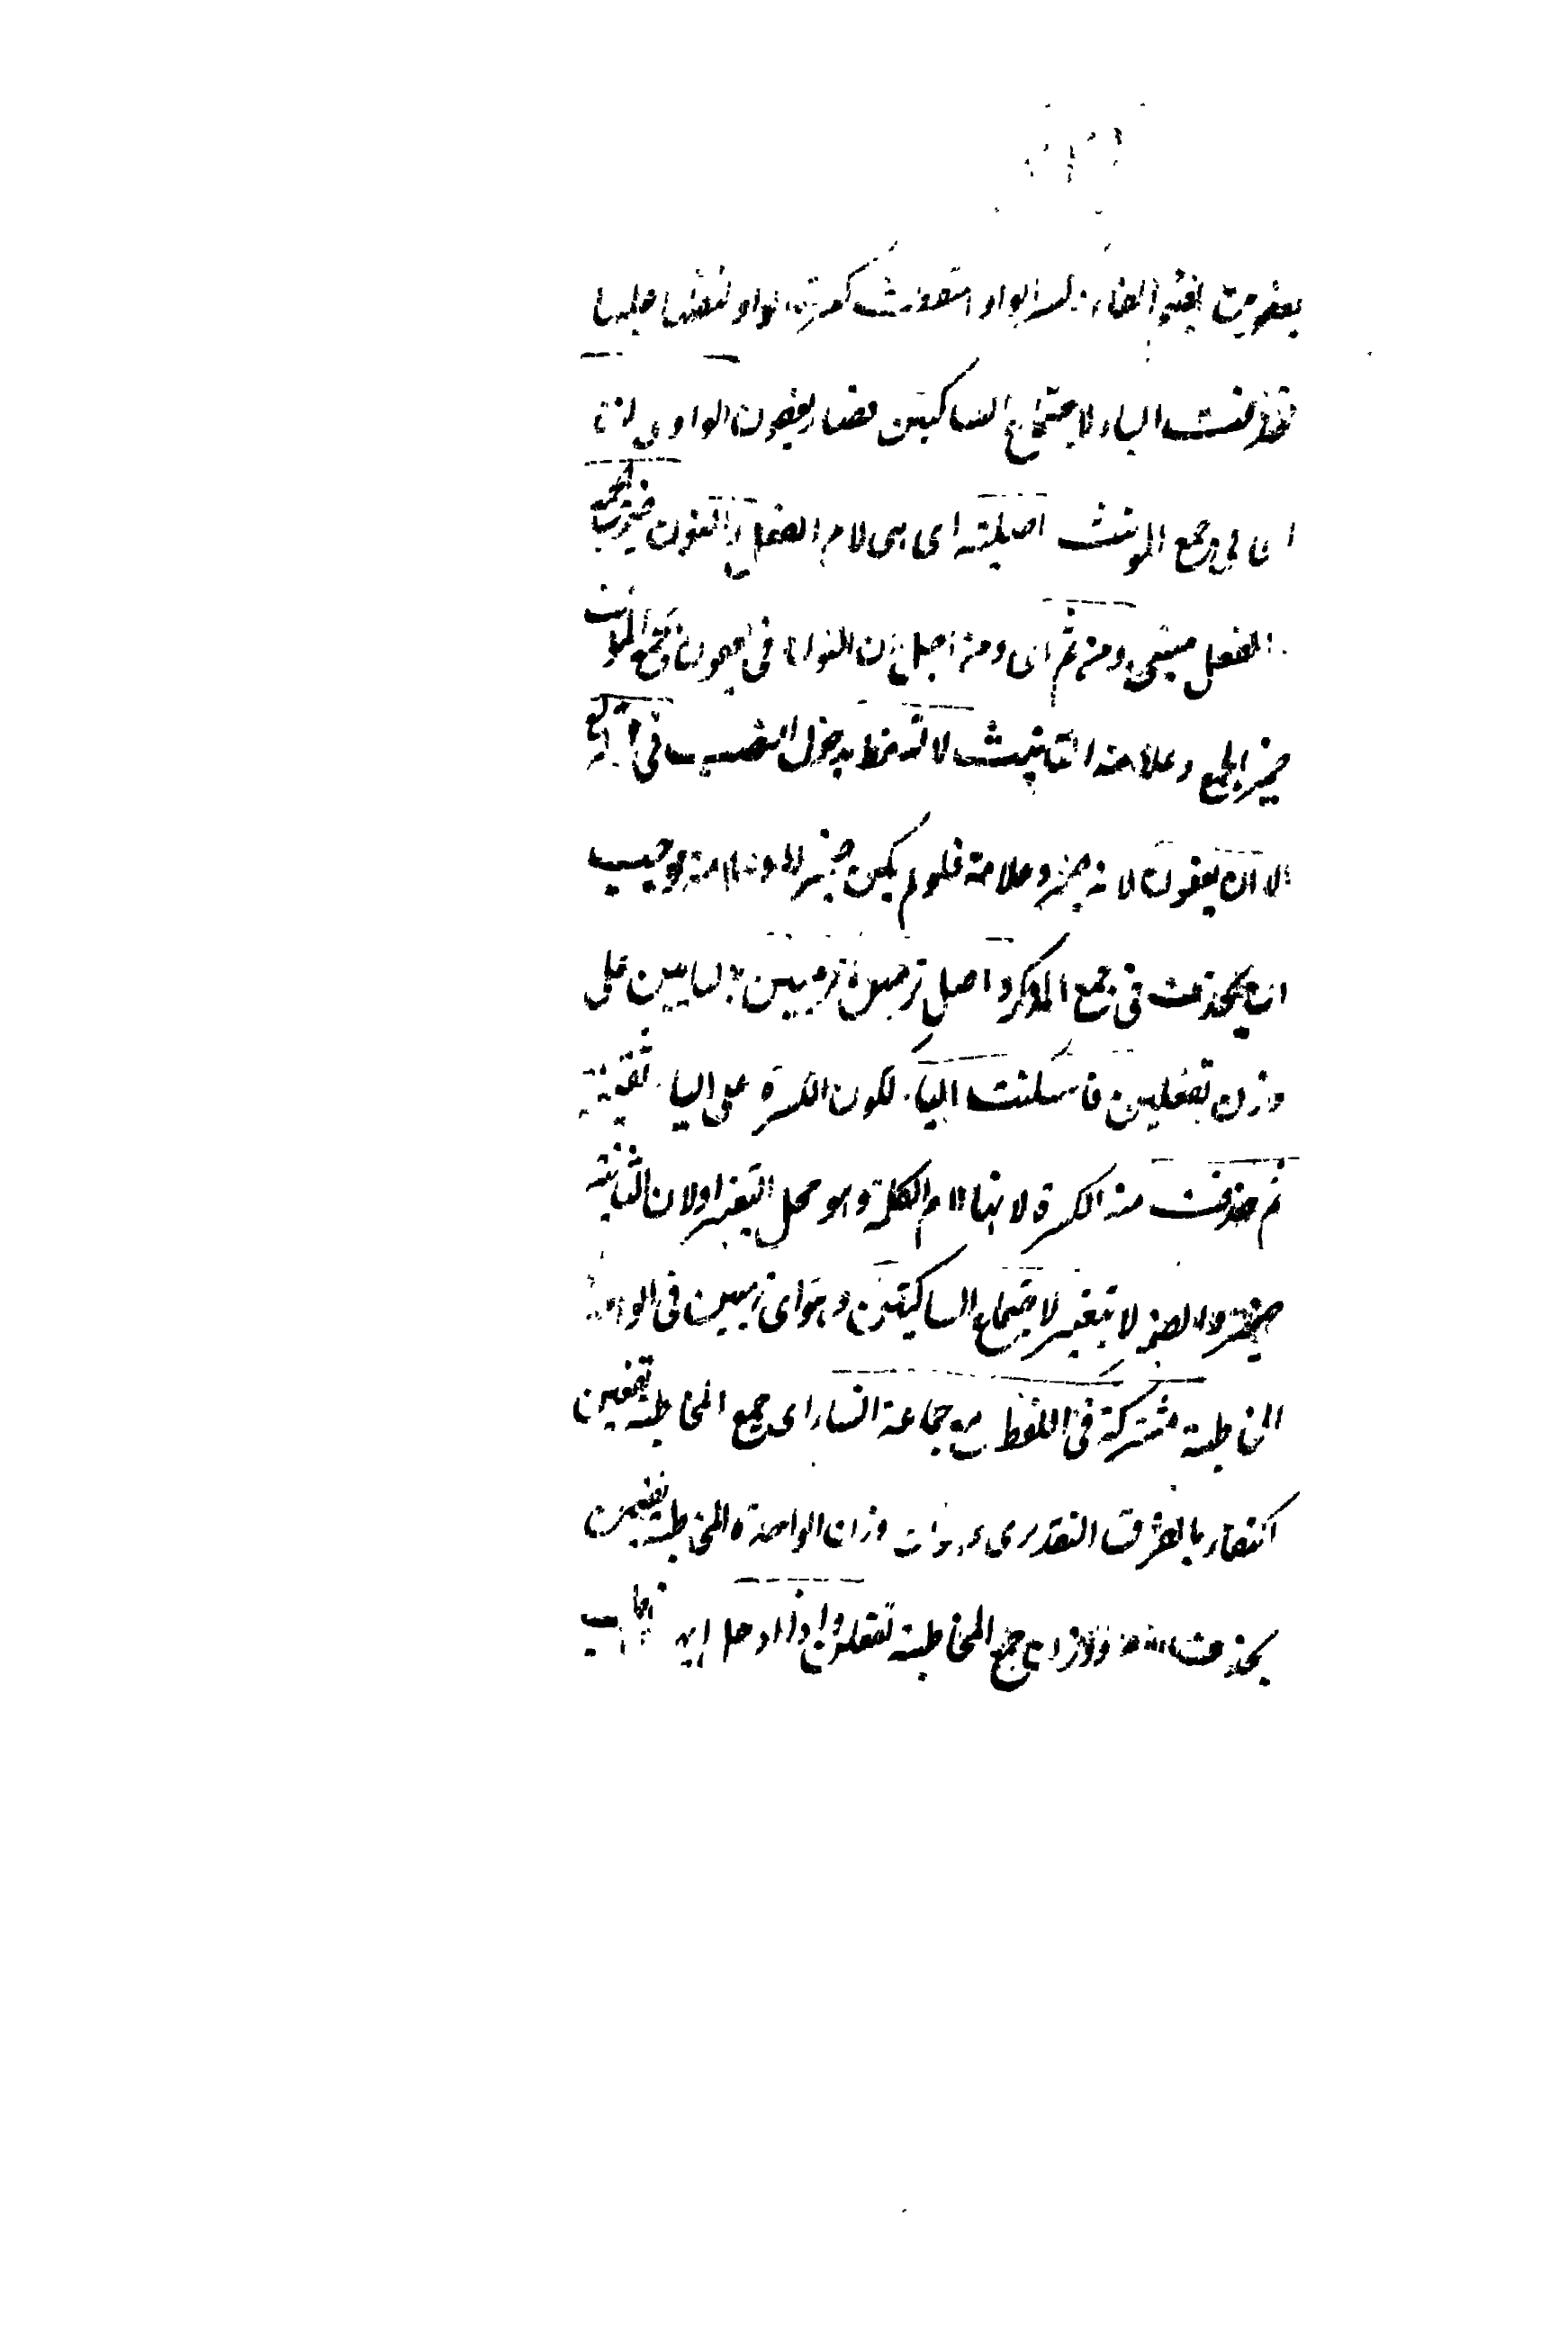 بفتح الفاء الواو كسرة الواو لثقلها عليها
فحذفت الياء لاجتماع الساكنين فصار يعفون الواو
اى فى جمع المؤنث اصلية اى هى لام الفعل والنون ضمير الجمع
الفعل مبنى ومن ثم اى ومن اجل ان النون فى جمع المؤنث
ضمير الجمع وعلامة التأنيث لا تسقط بدخول النصب فى
الا ان يعفون لانه ضمير وعلامة فلو لم يكن
ان يحذف فى جمع المذكر واصل ترمين ترميين باليايين على
وزن تفعلين فاسكنت الياء لكون الكسرة على الياء ثقيلة
ثم حذفت الكسرة لانها لام الكلمة وهو محل التغير اولان الثانية
ضمير والضمير لا يتغير لاجتماع الساكنين وهو اى ترمين فى الواحدة
المخاطبة مشتركة فى اللفظ مع جماعة النساء اى جمع المخاطبة تفعين
اكتفاء بالفرق التقديرى وزان الواحدة المخاطبة تفعين
بحذف اللام ووزان جمع المخاطبة تفعلن واذا ادخل